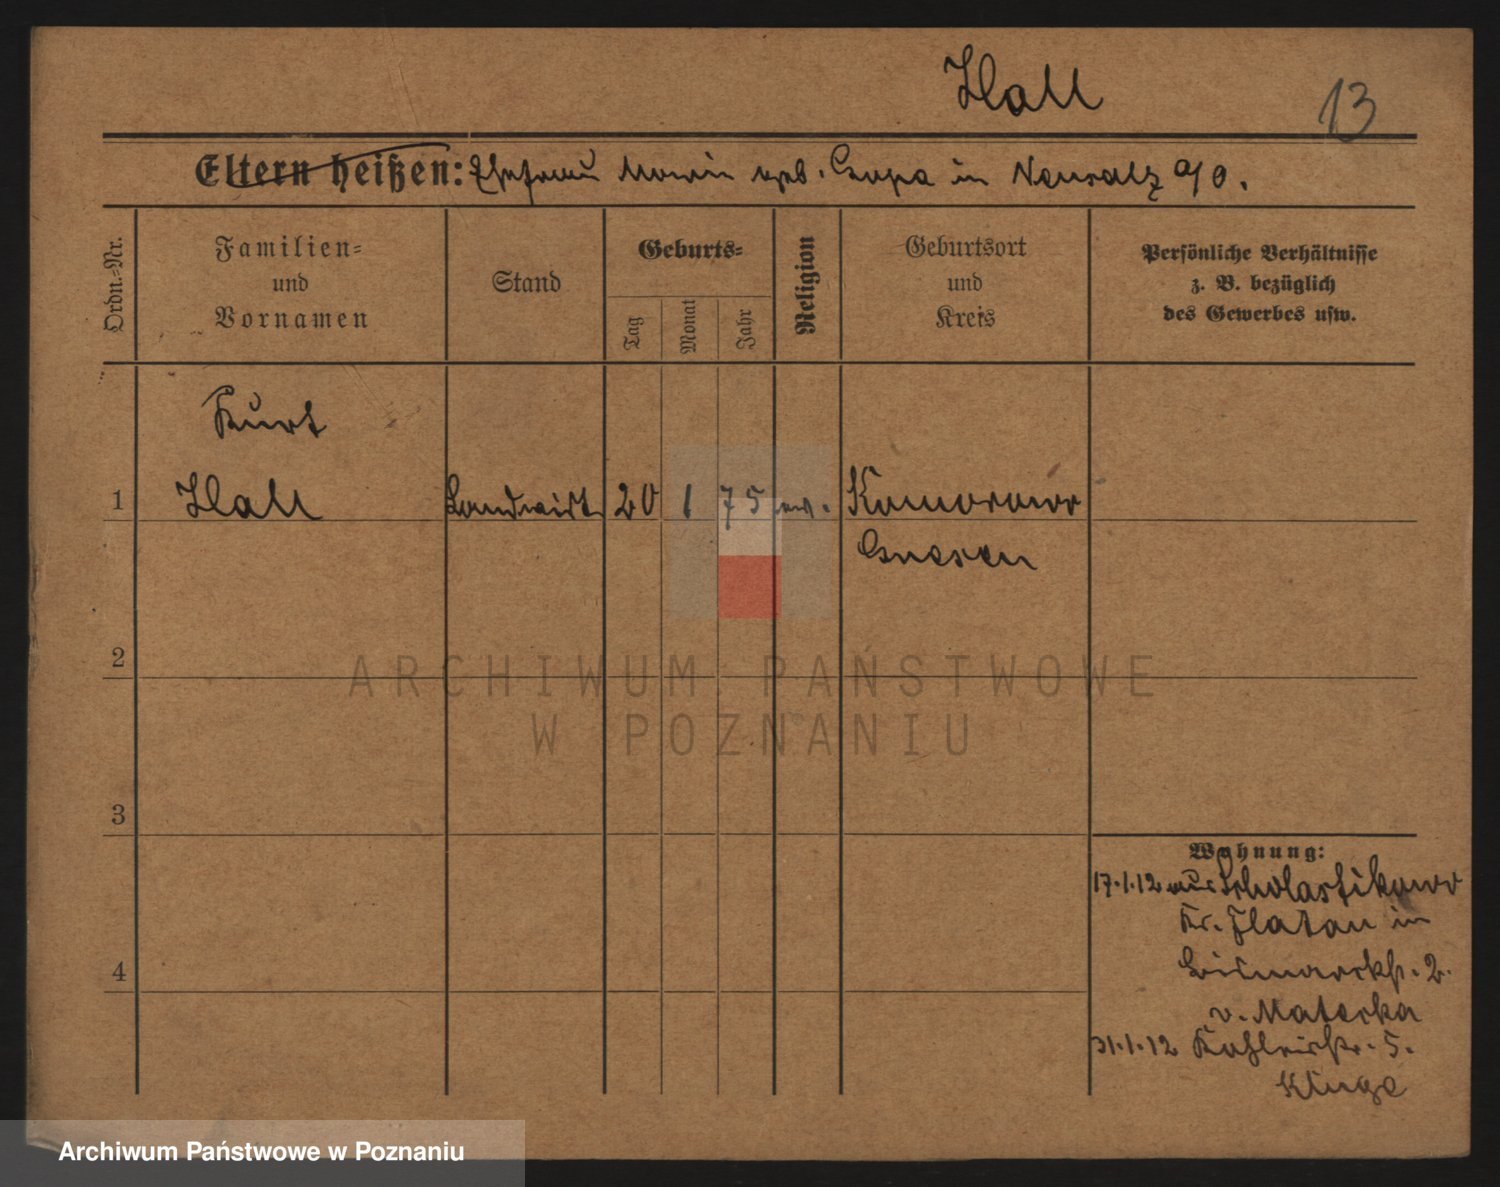 Hall
13
Eltern heißen: Ehefrau Maria geb. in Neusalz a/O.
Ordn.=Nr.
Familien=
und
Vornamen
Stand
Geburts=
Tag
Monat
Jahr
Religion
Geburtsort
und
Kreis
Persönliche Verhältnisse
z. B. bezüglich
des Gewerbes usw.
Kurt
1 Hall Landwirt 20 1 75 ev. Komorowo
Gnesen
2
3
4
Wohnung:
17.1.12 aus Scholastikowo
Kr. Flatau in
Bismarckstr. 2.
v. Materka
31.1.12 5.
Kluge
ARCHIWUM PAŃSTWOWE
W POZNANIU
Archiwum Państwowe w Poznaniu